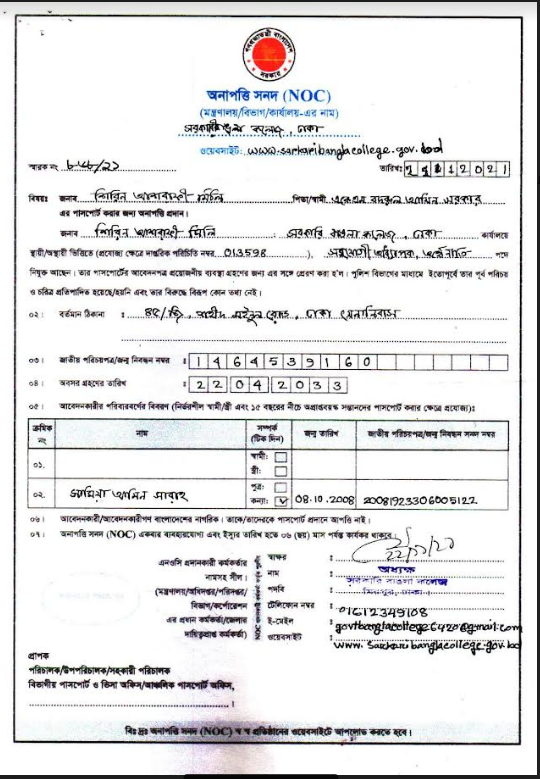 গণপ্রজাতন্ত্রী বাংলাদেশ
সরকার
অনাপত্তি সনদ (NOC)
(মন্ত্রণালয়/বিভাগ/কার্যালয়-এর নাম)
সরকারি বাংলা কলেজ, ঢাকা
ওয়েবসাইট: www.sarkaribanglacollege.gov.bd
স্মারক নং ৮৬/২১ তারিখঃ 2021
বিষয়ঃ জনাব শিরিন আশরাফী মিলি পিতা/স্বামী. আমিন সরকার
এর পাসপোর্ট করার জন্য অনাপত্তি প্রদান।
জনাব শিরিন আশরাফী মিলি , সরকারি বাঙলা কলেজ, ঢাকা কার্যালয়ে
স্থায়ী/অস্থায়ী ভিত্তিতে (প্রযোজ্য ক্ষেত্রে দাপ্তরিক পরিচিতি নম্বর 013598 ), সহযোগী অধ্যাপক, অর্থনীতি পদে
নিযুক্ত আছেন। তার পাসপোর্টের আবেদনপত্র প্রয়োজনীয় ব্যবস্থা গ্রহণের জন্য এর সঙ্গে প্রেরণ করা হ'ল। পুলিশ বিভাগের মাধ্যমে ইতোপূর্বে তার পূর্ব পরিচয়
ও চরিত্র প্রতিপাদিত হয়েছে/হয়নি এবং তার বিরুদ্ধে বিরূপ কোন তথ্য নেই।
০২। বর্তমান ঠিকানা : ৪৫/জি, শহীদ মইনুল রোড, ঢাকা সেনানিবাস
০৩। জাতীয় পরিচয়পত্র/জন্ম নিবন্ধন নম্বর : 1464539160
০৪। অবসর গ্রহণের তারিখ : 22042033
০৫। আবেদনকারীর পরিবারবর্গের বিবরণ (নির্ভরশীল স্বামী/স্ত্রী এবং ১৫ বছরের নীচে অপ্রাপ্তবয়স্ক সন্তানদের পাসপোর্ট করার ক্ষেত্রে প্রযোজ্য)ঃ
ক্রমিক নং নাম সম্পর্ক (টিক দিন) জন্ম তারিখ জাতীয় পরিচয়পত্র/জন্ম নিবন্ধন সনদ নম্বর
০১. স্বামী:
স্ত্রী:
০২. সামিয়া আমিন সারাহ পুত্র:
কন্যা: 08.10.2008 20081923306005122
০৬। আবেদনকারী/আবেদনকারীগণ বাংলাদেশের নাগরিক। তাকে/তাদেরকে পাসপোর্ট প্রদানে আপত্তি নাই।
০৭। অনাপত্তি সনদ (NOC) একবার ব্যবহারযোগ্য এবং ইস্যুর তারিখ হতে ০৬ (ছয়) মাস পর্যন্ত কার্যকর থাকবে।
এনওসি প্রদানকারী কর্মকর্তার
নামসহ সীল।
(মন্ত্রণালয়/অধিদপ্তর/পরিদপ্তর/
বিভাগ/কর্পোরেশন
এর প্রধান কর্মকর্তা/জেলার
দায়িত্বপ্রাপ্ত কর্মকর্তা)
স্বাক্ষর :
নাম : অধ্যক্ষ
পদবি : সরকারি বাঙলা কলেজ
মিরপুর, ঢাকা
টেলিফোন নম্বর : 01612349108
ই-মেইল : govtbanglacollege6420@gmail.com
ওয়েবসাইট : www.sarkaribanglacollege.gov.bd
প্রাপক
পরিচালক/উপপরিচালক/সহকারী পরিচালক
বিভাগীয় পাসপোর্ট ও ভিসা অফিস/আঞ্চলিক পাসপোর্ট অফিস,
বিঃ দ্রঃ অনাপত্তি সনদ (NOC) স্ব স্ব প্রতিষ্ঠানের ওয়েবসাইটে আপলোড করতে হবে।